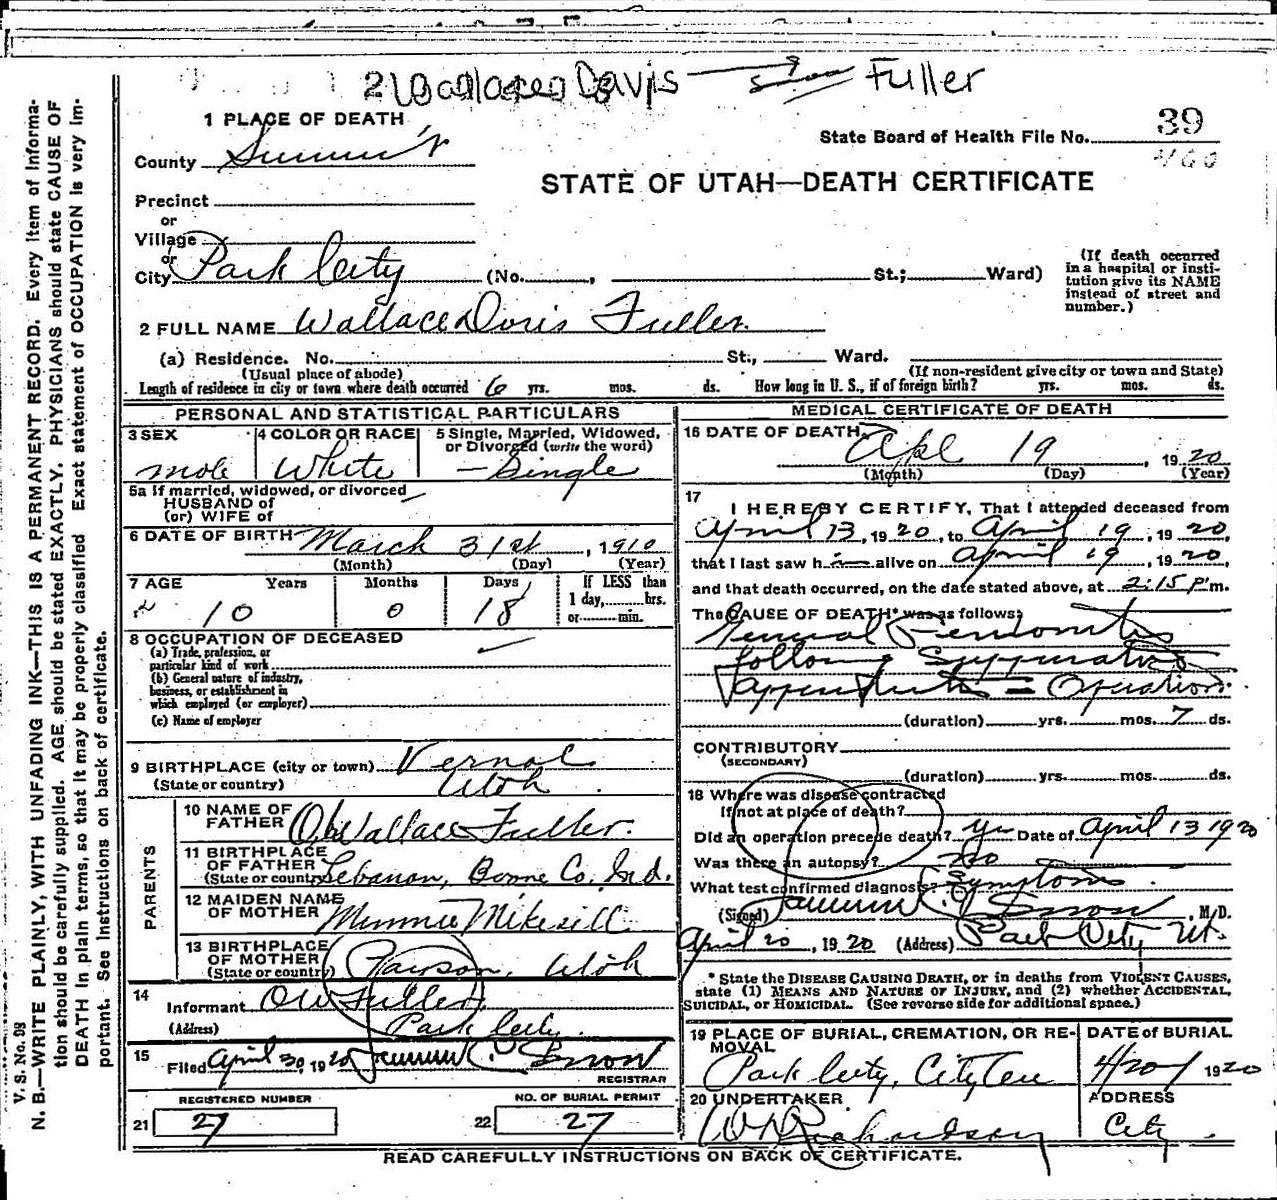 2 Wallace Davis → Fuller
1 PLACE OF DEATH
County Summit
State Board of Health File No. 39
STATE OF UTAH—DEATH CERTIFICATE
Precinct
or
Village
or
City Park City (No. , St.; Ward)
(If death occurred in a hospital or institution give its NAME instead of street and number.)
2 FULL NAME Wallace Doris Fuller.
(a) Residence. No. St., Ward.
(Usual place of abode) (If non-resident give city or town and State)
Length of residence in city or town where death occurred 6 yrs. mos. ds. How long in U. S., if of foreign birth? yrs. mos. ds.
PERSONAL AND STATISTICAL PARTICULARS
3 SEX 4 COLOR OR RACE 5 Single, Married, Widowed, or Divorced (write the word)
male White Single
5a If married, widowed, or divorced
HUSBAND of
(or) WIFE of
6 DATE OF BIRTH March 31st, 1910
(Month) (Day) (Year)
7 AGE Years Months Days If LESS than
1 day, hrs.
or min.
10 0 18
8 OCCUPATION OF DECEASED
(a) Trade, profession, or
particular kind of work
(b) General nature of industry,
business, or establishment in
which employed (or employer)
(c) Name of employer
9 BIRTHPLACE (city or town) Vernal
(State or country) Utah
PARENTS
10 NAME OF FATHER Wallace Fuller.
11 BIRTHPLACE OF FATHER
(State or country) Lebanon, Boone Co. Ind.
12 MAIDEN NAME OF MOTHER Minnie Mikesill
13 BIRTHPLACE OF MOTHER
(State or country) Utah
14 Informant O W Fuller
(Address) Park City.
15 Filed April 30, 1920 Snow
REGISTRAR
REGISTERED NUMBER NO. OF BURIAL PERMIT
21 27 22 27
MEDICAL CERTIFICATE OF DEATH
16 DATE OF DEATH
Apl 19, 1920
(Month) (Day) (Year)
17 I HEREBY CERTIFY, That I attended deceased from
April 13, 1920, to April 19, 1920,
that I last saw him alive on April 19, 1920,
and that death occurred, on the date stated above, at 2:15 P m.
The CAUSE OF DEATH* was as follows:
General Peritonitis
following Suppurative
appendicitis = Operation.
(duration) yrs. mos. 7 ds.
CONTRIBUTORY
(SECONDARY)
(duration) yrs. mos. ds.
18 Where was disease contracted
if not at place of death?
Did an operation precede death? Yes Date of April 13 1920
Was there an autopsy? No
What test confirmed diagnosis? Symptoms.
(Signed) Snow, M.D.
April 20, 1920 (Address) Park City Ut.
* State the DISEASE CAUSING DEATH, or in deaths from VIOLENT CAUSES,
state (1) MEANS AND NATURE OF INJURY, and (2) whether ACCIDENTAL,
SUICIDAL, or HOMICIDAL. (See reverse side for additional space.)
19 PLACE OF BURIAL, CREMATION, OR REMOVAL DATE OF BURIAL
Park City, City Cem 4/20/ 1920
20 UNDERTAKER ADDRESS
Richardson City.
READ CAREFULLY INSTRUCTIONS ON BACK OF CERTIFICATE.
V. S. No. 98
N. B.—WRITE PLAINLY, WITH UNFADING INK—THIS IS A PERMANENT RECORD. Every item of informa-
tion should be carefully supplied. AGE should be stated EXACTLY. PHYSICIANS should state CAUSE OF
DEATH in plain terms, so that it may be properly classified. Exact statement of OCCUPATION is very im-
portant. See instructions on back of certificate.